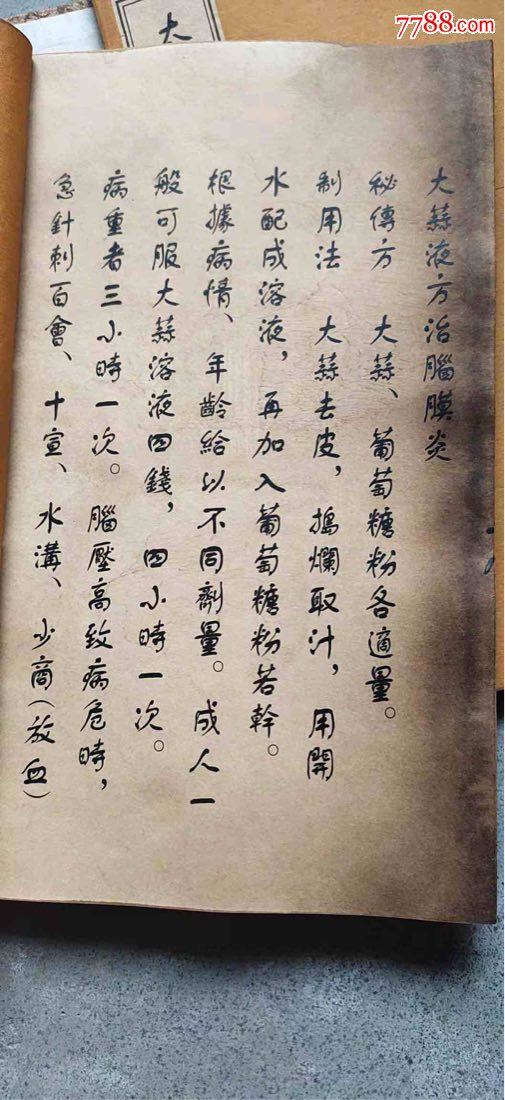 7788.com
大
大蒜液方治腦膜炎
秘傳方 大蒜、葡萄糖粉各適量。
制用法 大蒜去皮，搗爛取汁，用開
水配成溶液，再加入葡萄糖粉若幹。
根據病情、年齡給以不同劑量。成人一
般可服大蒜溶液四錢，四小時一次。
病重者三小時一次。腦壓高致病危時，
急針刺百會、十宣、水溝、少商（放血）